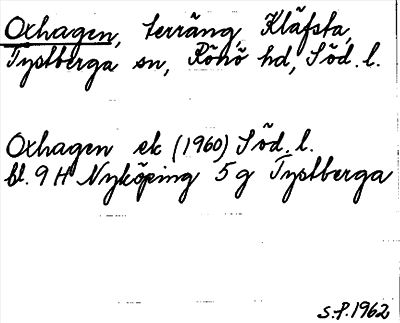 Oxhagen, terräng, Kläfsta,
Tystberga sn, Rönö hd, Söd. l.
Oxhagen ek (1960) Söd. l.
bl. 9 H Nyköping 5 g Tystberga
S.P. 1962